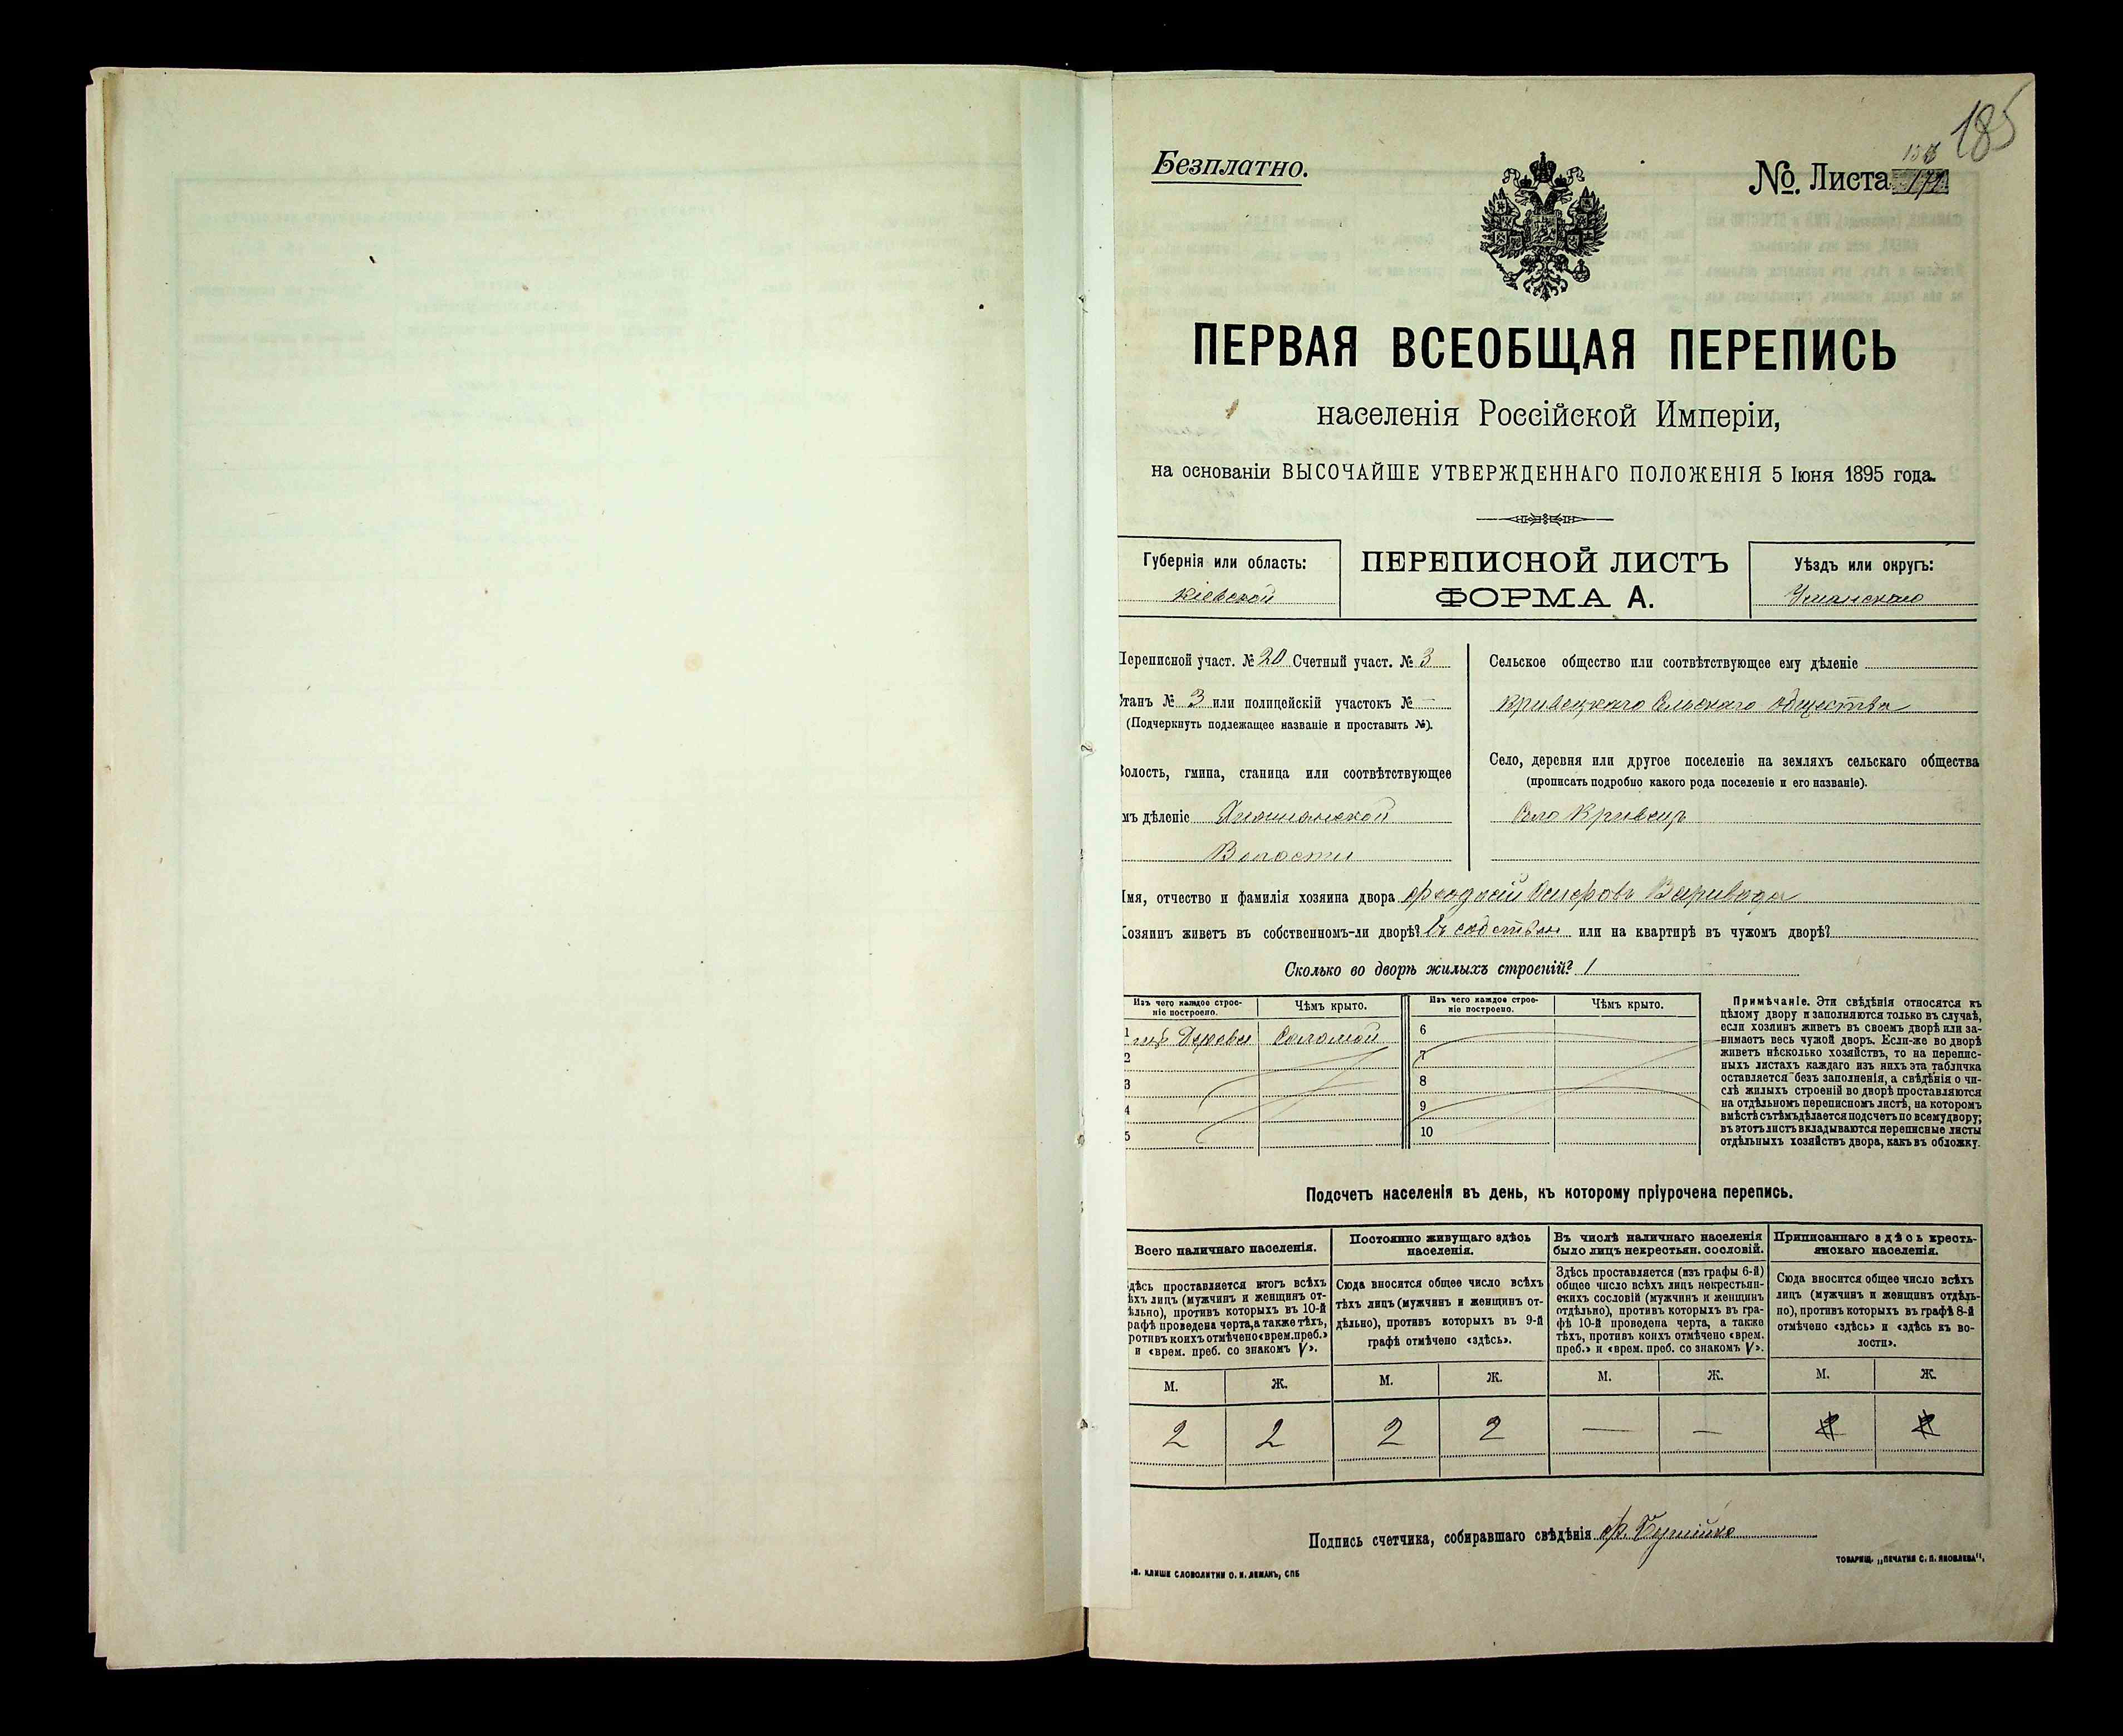 185
Безплатно.
№. Листа
ПЕРВАЯ ВСЕОБЩАЯ ПЕРЕПИСЬ
населенія Россійской Имперіи,
на основаніи ВЫСОЧАЙШЕ УТВЕРЖДЕННАГО ПОЛОЖЕНІЯ 5 Іюня 1895 года.
Губернія или область:
Кіевской
ПЕРЕПИСНОЙ ЛИСТЪ
ФОРМА А.
Уѣздъ или округъ:
Уманскаго
Переписной участ. № 20 Счетный участ. № 3
Станъ № 3 или полицейскій участокъ № —
(Подчеркнуть подлежащее названіе и проставить №).
Волость, гмина, станица или соотвѣтствующее
имъ дѣленіе
Волости
Сельское общество или соотвѣтствующее ему дѣленіе
Кривецкаго Сельскаго Общества
Село, деревня или другое поселеніе на земляхъ сельскаго общества
(прописать подробно какого рода поселеніе и его названіе).
Село Кривецъ
Имя, отчество и фамилія хозяина двора Феодосій Осиповъ Варивода
Хозяинъ живетъ въ собственномъ-ли дворѣ? въ собствен или на квартирѣ въ чужомъ дворѣ?
Сколько во дворѣ жилыхъ строеній? 1
Изъ чего каждое строе-
ніе построено.
Чѣмъ крыто.
Изъ чего каждое строе-
ніе построено.
Чѣмъ крыто.
1 изъ Дерева Соломой
2
3
4
5
6
7
8
9
10
Примѣчаніе. Эти свѣдѣнія относятся къ
цѣлому двору и заполняются только въ случаѣ,
если хозяинъ живетъ въ своемъ дворѣ или за-
нимаетъ весь чужой дворъ. Если-же во дворѣ
живетъ нѣсколько хозяйствъ, то на перепис-
ныхъ листахъ каждаго изъ нихъ эта табличка
оставляется безъ заполненія, а свѣдѣнія о чи-
слѣ жилыхъ строеній во дворѣ проставляются
на отдѣльномъ переписномъ листѣ, на которомъ
вмѣстѣ съ тѣмъ дѣлается подсчетъ по всему двору;
въ этотъ листъ вкладываются переписные листы
отдѣльныхъ хозяйствъ двора, какъ въ обложку.
Подсчетъ населенія въ день, къ которому пріурочена перепись.
Всего наличнаго населенія.
Здѣсь проставляется итогъ всѣхъ
тѣхъ лицъ (мужчинъ и женщинъ от-
дѣльно), противъ которыхъ въ 10-й
графѣ проведена черта, а также тѣхъ,
противъ коихъ отмѣчено «врем. преб.»
и «врем. преб. со знакомъ V».
Постоянно живущаго здѣсь
населенія.
Сюда вносится общее число всѣхъ
тѣхъ лицъ (мужчинъ и женщинъ от-
дѣльно), противъ которыхъ въ 9-й
графѣ отмѣчено «здѣсь».
Въ числѣ наличнаго населенія
было лицъ некрестьян. сословій.
Здѣсь проставляется (изъ графы 6-й)
общее число всѣхъ лицъ некрестьян-
скихъ сословій (мужчинъ и женщинъ
отдѣльно), противъ которыхъ въ гра-
фѣ 10-й проведена черта, а также
тѣхъ, противъ коихъ отмѣчено «врем.
преб.» и «врем. преб. со знакомъ V».
Приписаннаго здѣсь кресть-
янскаго населенія.
Сюда вносится общее число всѣхъ
лицъ (мужчинъ и женщинъ отдѣль-
но), противъ которыхъ въ графѣ 8-й
отмѣчено «здѣсь» и «здѣсь къ во-
лости».
М. Ж. М. Ж. М. Ж. М. Ж.
2 2 2 2 — —
Подпись счетчика, собиравшаго свѣдѣнія
КЛИШЕ СЛОВОЛИТНИ О. И. ЛЕМАНЪ, СПБ
ТОВАРИЩ. „ПЕЧАТНЯ С. П. ЯКОВЛЕВА“.